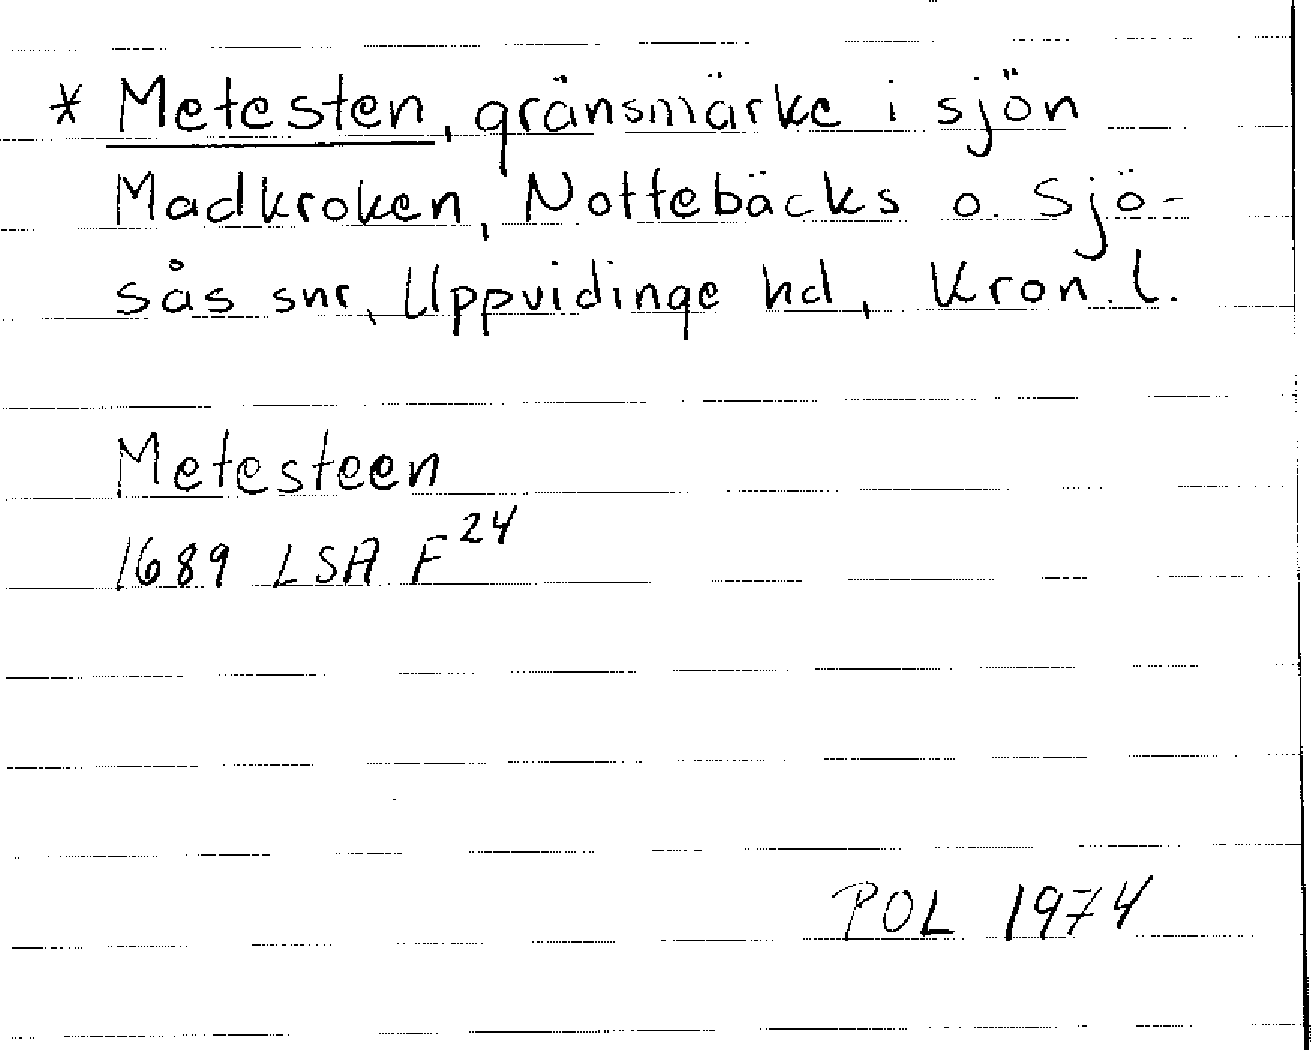 * Metesten, gränsmärke i sjön
Madkroken, Nottebäcks o. Sjö-
sås snr, Uppvidinge hd, Kron. l.
Metesteen
1689 LSA F 24
POL 1974